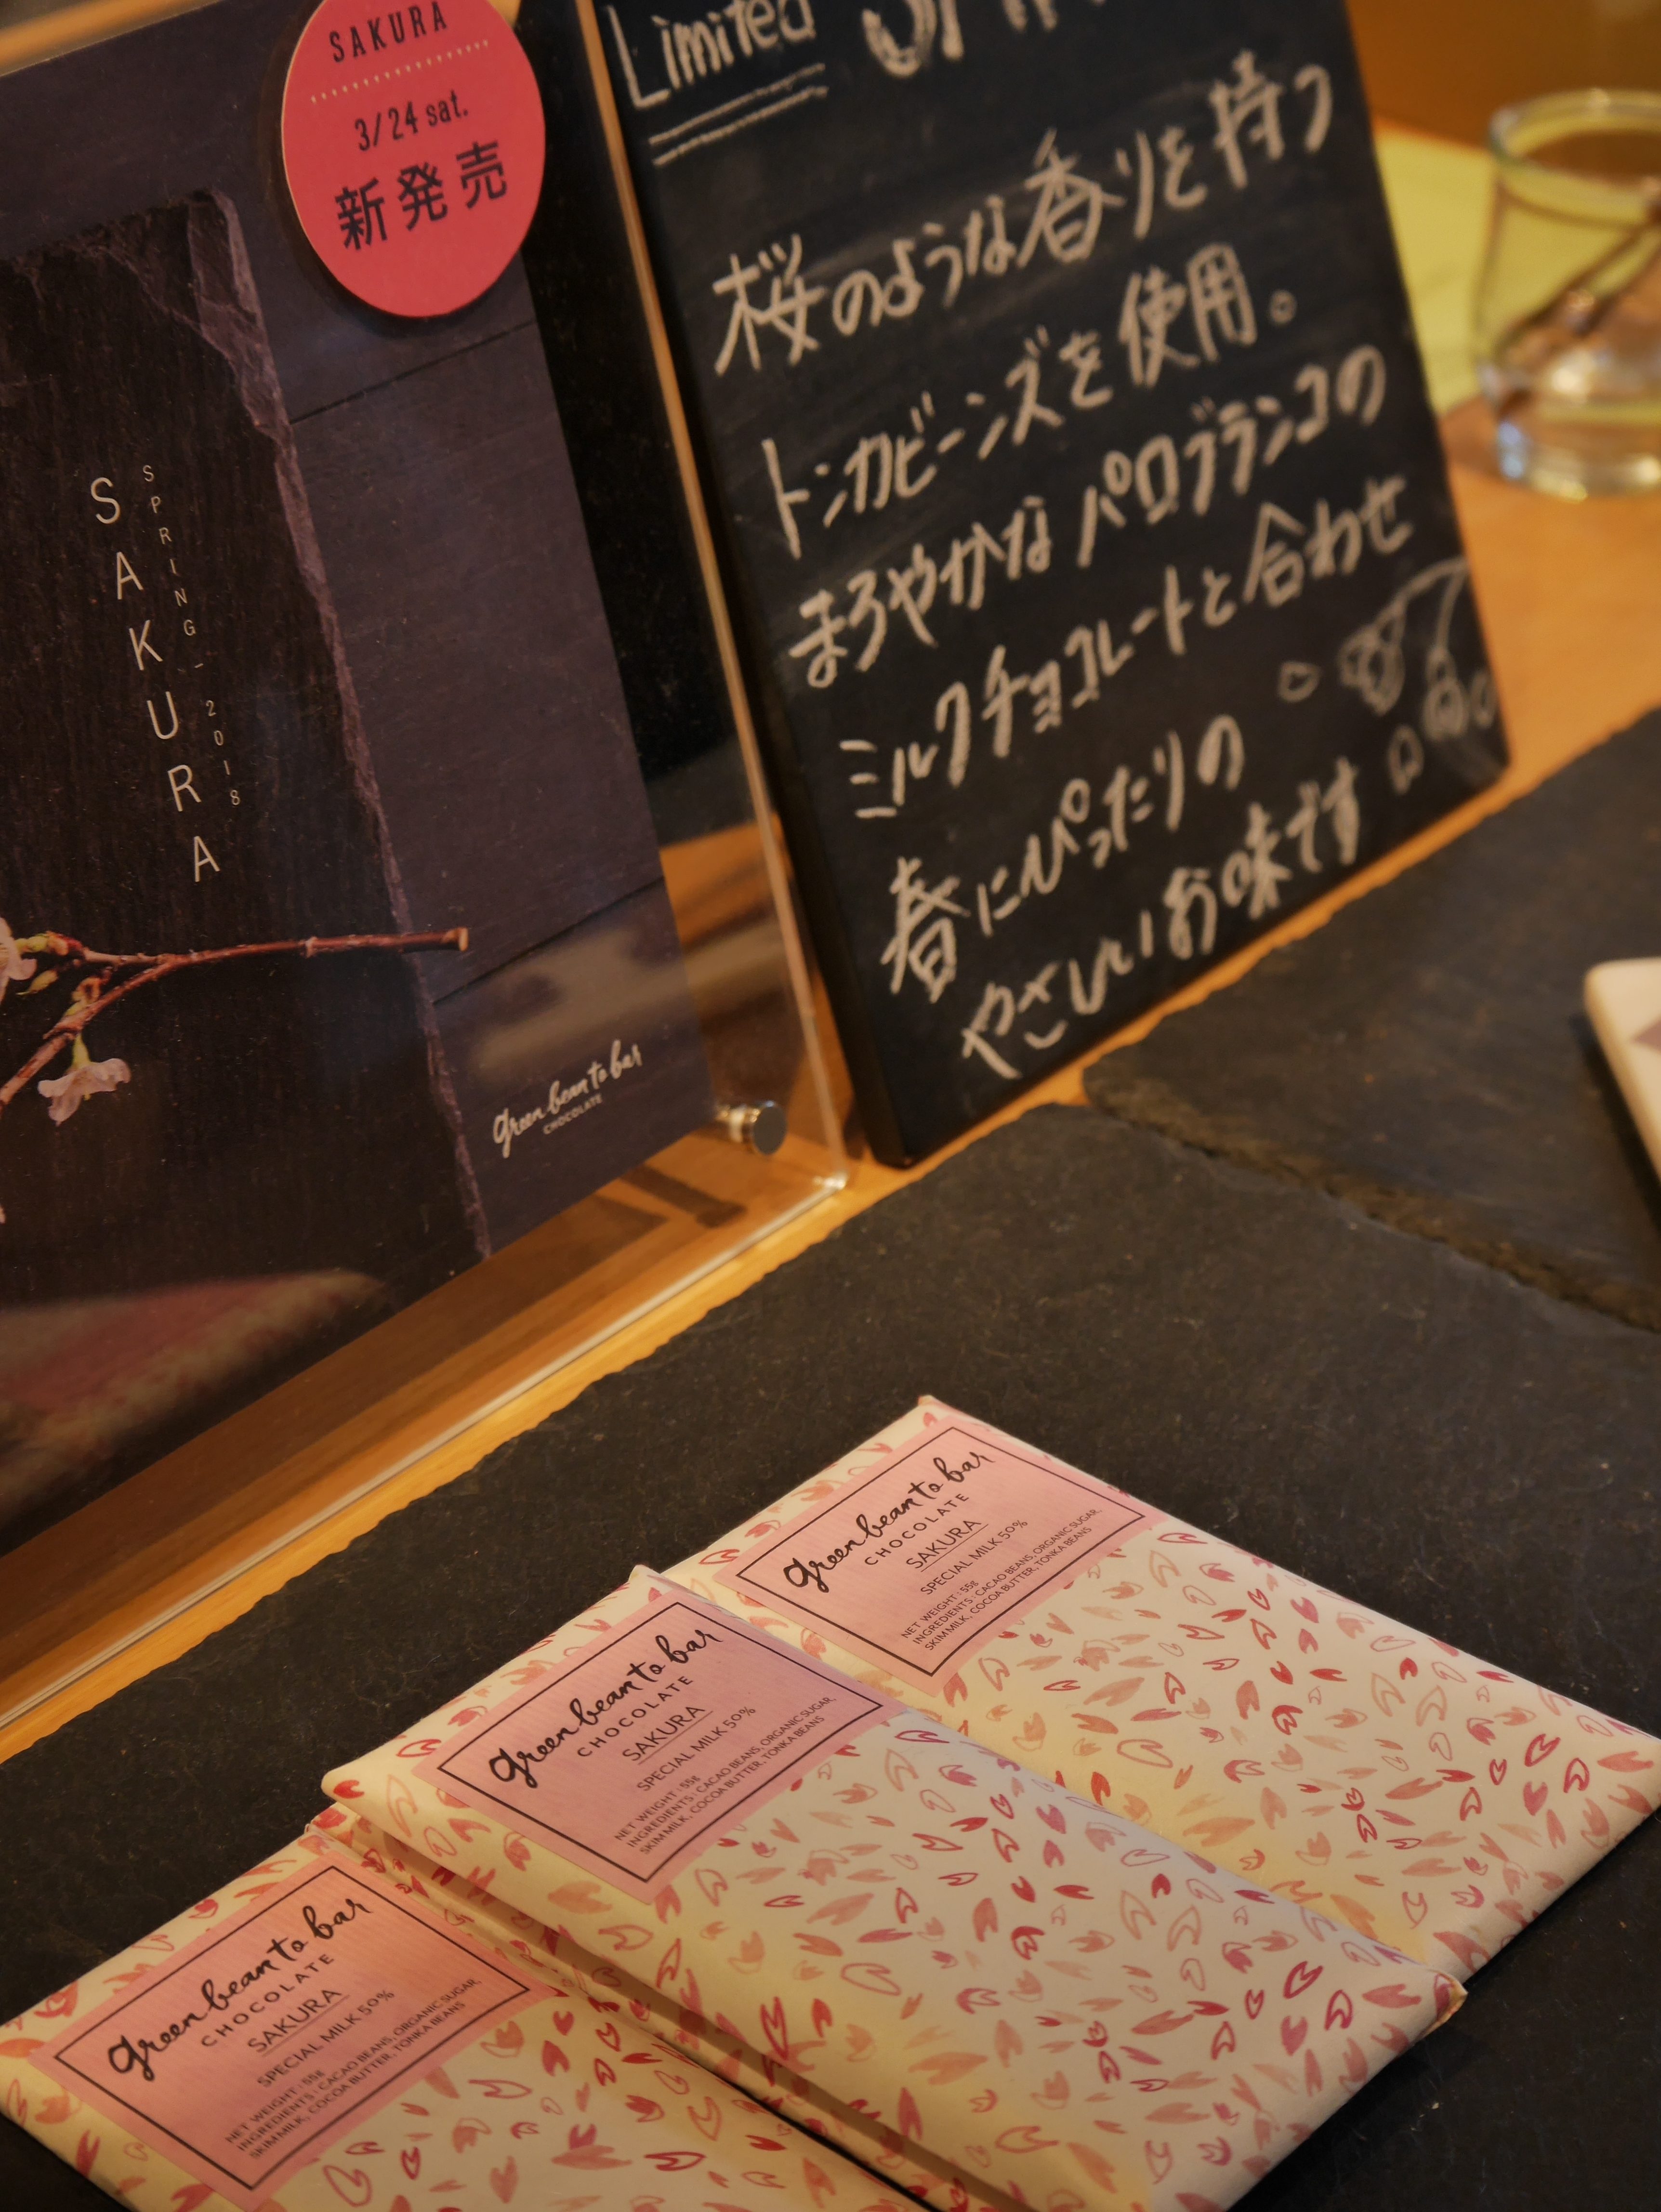 SAKURA
3/24 sat.
新発売
SAKURA
SPRING - 2018
green bean to bar
CHOCOLATE
Limited
桜のような香りを持つ
トンカビーンズを使用。
まろやかなパロブランコの
ミルクチョコレートと合わせ
春にぴったりの
やさしいお味です
green bean to bar
CHOCOLATE
SAKURA
SPECIAL MILK 50%
NET WEIGHT : 55g
INGREDIENTS : CACAO BEANS, ORGANIC SUGAR,
SKIM MILK, COCOA BUTTER, TONKA BEANS
green bean to bar
CHOCOLATE
SAKURA
SPECIAL MILK 50%
NET WEIGHT : 55g
INGREDIENTS : CACAO BEANS, ORGANIC SUGAR,
SKIM MILK, COCOA BUTTER, TONKA BEANS
green bean to bar
CHOCOLATE
SAKURA
SPECIAL MILK 50%
NET WEIGHT : 55g
INGREDIENTS : CACAO BEANS, ORGANIC SUGAR,
SKIM MILK, COCOA BUTTER, TONKA BEANS